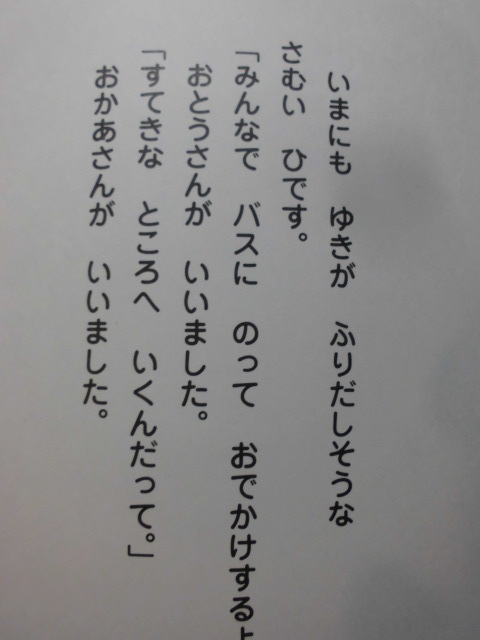 いまにも　ゆきが　ふりだしそうな
さむい　ひです。
「みんなで　バスに　のって　おでかけするよ
おとうさんが　いいました。
「すてきな　ところへ　いくんだって。」
おかあさんが　いいました。